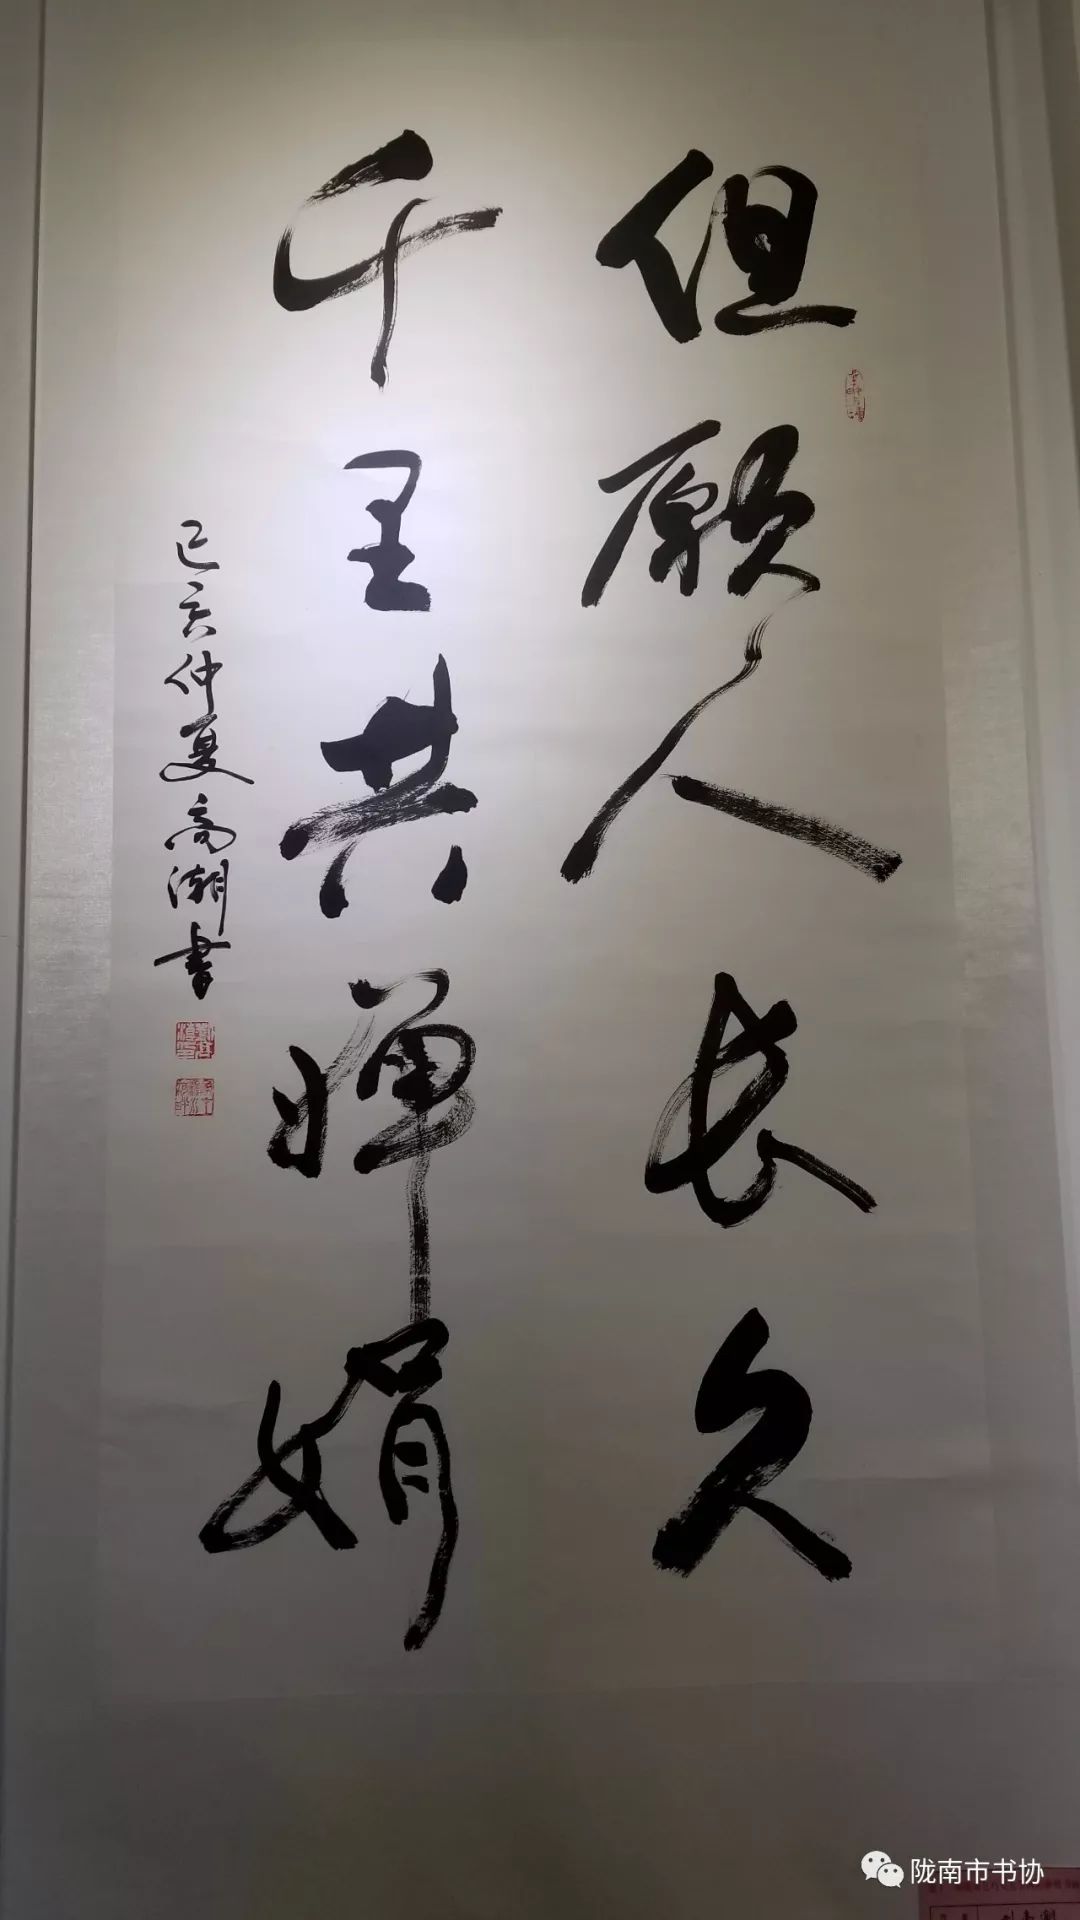 但愿人长久
千里共婵娟
己亥仲夏高潮书
陇南市书协